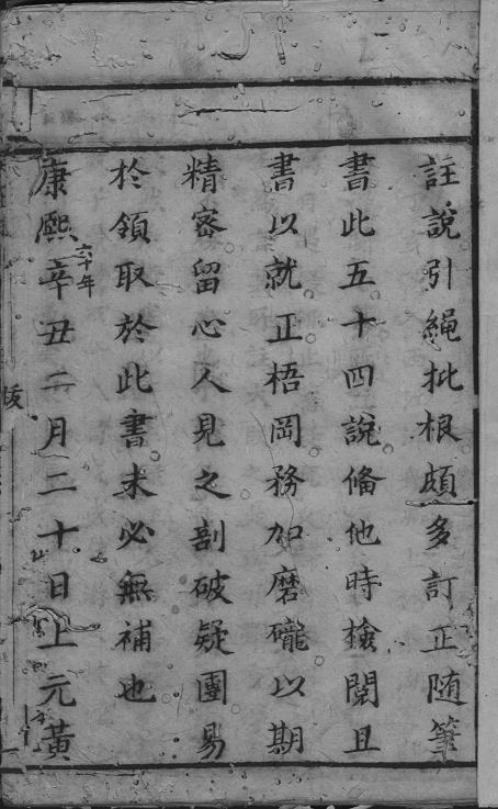 註說引繩批根頗多訂正随筆
書此五十四說俻他時撿閱且
書以就正梧岡務加磨礲以期
精密留心人見之剖破疑團易
於領取於此書未必無補也
康熈辛丑二月二十日上元黃
六十年